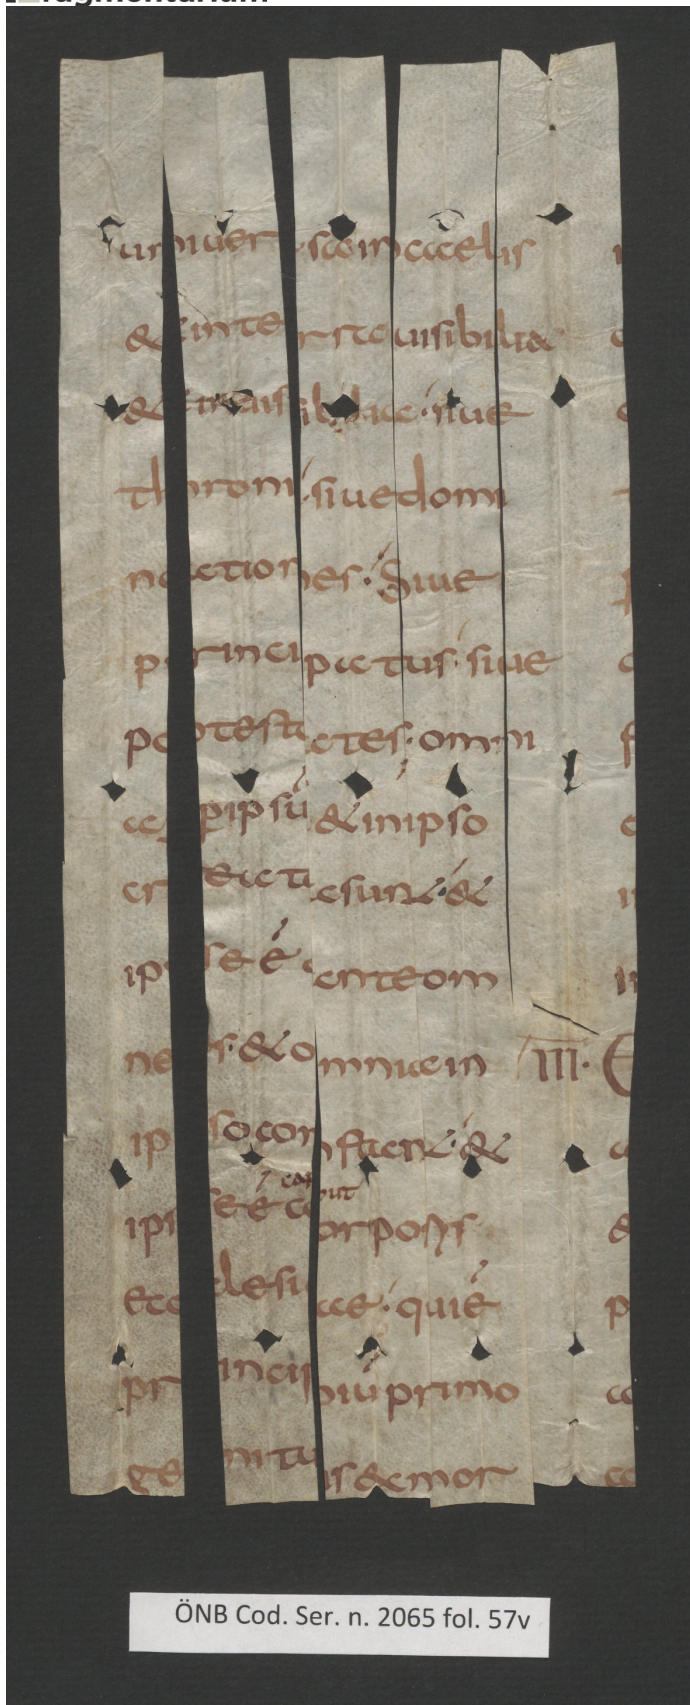 Fragmentarium
uniuersa in caelis
& in terra uisibilia
& inuisibilia · siue
throni · siue domi
nationes · Siue
principatus · siue
potestates · omni
a p ipsū & in ipso
creata sunt · &
ipse ē ante om
nes · & omnia in III · E
ipso constant · &
ipse ē caput corporis
ecclesiae · qui ē
principiū primo
genitus & mor
ÖNB Cod. Ser. n. 2065 fol. 57v